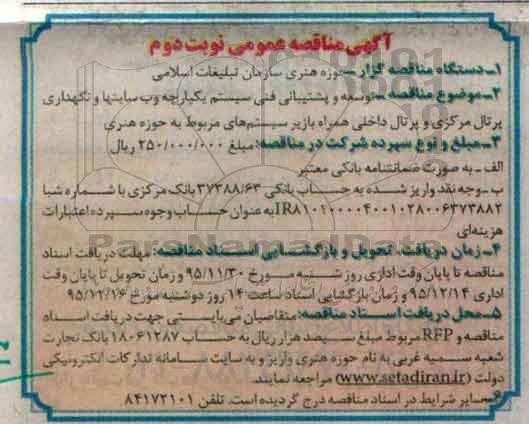 آگهی مناقصه عمومی نوبت دوم
۱ـ دستگاه مناقصه گزار ـ حوزه هنری سازمان تبلیغات اسلامی
۲ـ موضوع مناقصه ـ توسعه و پشتیبانی فنی سیستم یکپارچه وب سایتها و نگهداری
پرتال مرکزی و پرتال داخلی همراه با زیر سیستم‌های مربوط به حوزه هنری
۳ـ مبلغ و نوع سپرده شرکت در مناقصه: مبلغ ۲۵۰/۰۰۰/۰۰۰ ریال
الف ـ به صورت ضمانتنامه بانکی معتبر
ب ـ وجه نقد واریز شده به حساب بانکی ۳۷۳۸۸/۶۳ بانک مرکزی با شماره شبا
IR۸۱۰۱۰۰۰۰۴۰۰۱۰۲۸۰۰۶۳۷۳۸۸۲ به عنوان حساب وجوه سپرده اعتبارات
هزینه‌ای
۴ـ زمان دریافت، تحویل و بازگشایی اسناد مناقصه: مهلت دریافت اسناد
مناقصه تا پایان وقت اداری روز شنبه مورخ ۹۵/۱۱/۳۰ و زمان تحویل تا پایان وقت
اداری ۹۵/۱۲/۱۴ و زمان بازگشایی اسناد ساعت ۱۴ روز دوشنبه مورخ ۹۵/۱۲/۱۶
۵ـ محل دریافت اسناد مناقصه: متقاضیان می‌بایستی جهت دریافت اسناد
مناقصه و RFP مربوط مبلغ سیصد هزار ریال به حساب ۱۸۰۶۱۲۸۷ بانک تجارت
شعبه سمیه غربی به نام حوزه هنری واریز و به سایت سامانه تدارکات الکترونیکی
دولت (www.setadiran.ir) مراجعه نمایند.
۶ـ سایر شرایط در اسناد مناقصه درج گردیده است. تلفن ۸۴۱۷۲۱۰۱
ParsNamadData